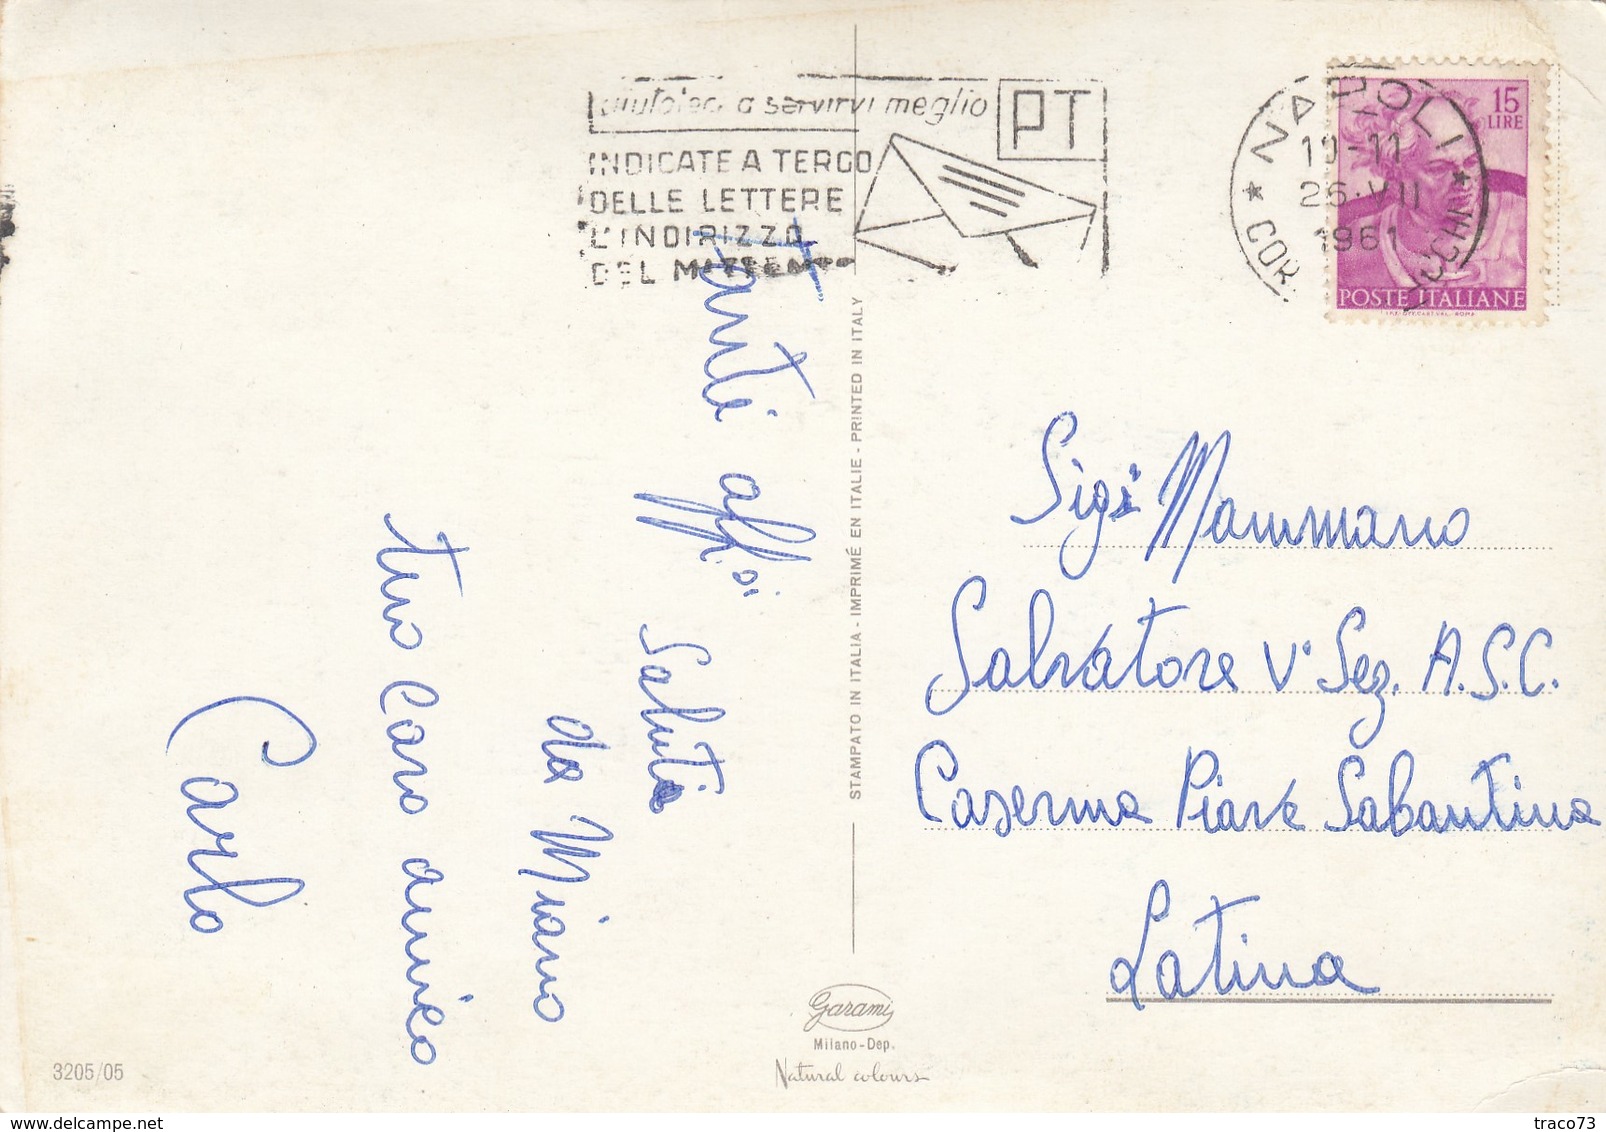 aiutateci a servirvi meglio
PT
INDICATE A TERGO
DELLE LETTERE
L'INDIRIZZO
DEL MITTENTE
NAPOLI
10-11
26·VII
1961
15
LIRE
POSTE ITALIANE
Tanti aff.oi
Saluti
da Miano
tuo Caro amico
Carlo
STAMPATO IN ITALIA - IMPRIMÉ EN ITALIE - PRINTED IN ITALY
Sig. Mammano
Salvatore V° Sez. A.S.C.
Caserma Piave Sabautina
Latina
Garami
Milano-Dep.
Natural colours
3205/05
delcampe.net
traco73